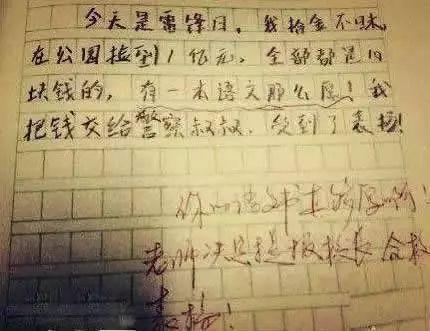 今天是雷锋日，我拾金不昧，
在公园捡到1亿元，全部都是10
块钱的，有一本语文那么厚！我
把钱交给警察叔叔，受到了表扬！
你的语文书真够厚的！
老师决定提报校长全校
表扬！